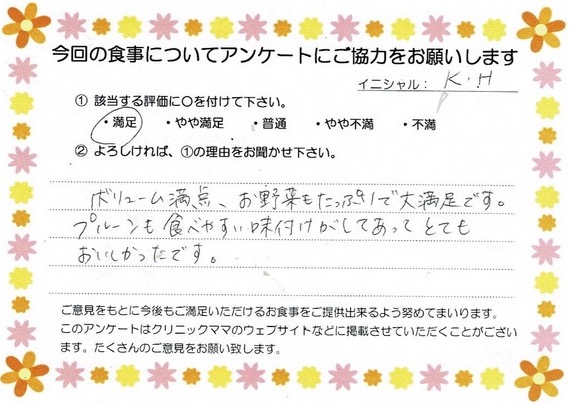 今回の食事についてアンケートにご協力をお願いします
イニシャル： K.H
① 該当する評価に○を付けて下さい。
・満足 ・やや満足 ・普通 ・やや不満 ・不満
② よろしければ、①の理由をお聞かせ下さい。
ボリューム満点、お野菜もたっぷりで大満足です。
プルーンも食べやすい味付けがしてあってとても
おいしかったです。
ご意見をもとに今後もご満足いただけるお食事をご提供出来るよう努めてまいります。
このアンケートはクリニックママのウェブサイトなどに掲載させていただくことがござい
ます。たくさんのご意見をお願い致します。